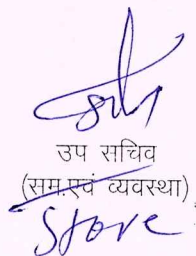 उप सचिव
(सम.एवं व्यवस्था)
Store